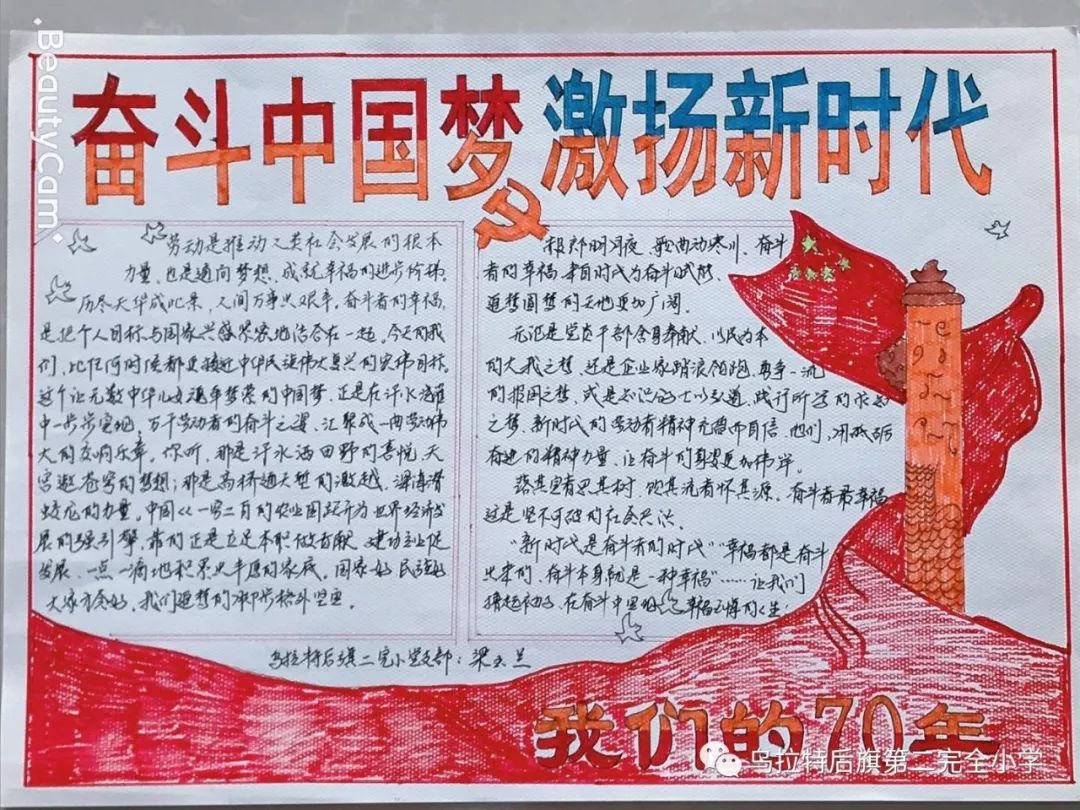 奋斗中国梦 激扬新时代
劳动是推动人类社会发展的根本
力量,也是通向梦想、成就幸福的进步阶梯。
历尽天华成此景,人间万事出艰辛。奋斗者的幸福,
是把个人目标与国家兴盛紧紧地结合在一起。今天的我
们,比任何时候都更接近中华民族伟大复兴的宏伟目标。
这个让无数中华儿女魂牵梦萦的中国梦,正是在汗水浇灌
中一步步实现。万千劳动者的奋斗之姿,汇聚成一曲劳动伟
大的交响乐章。你听,那是汗水洒田野的喜悦,天
宫遨苍穹的梦想;那是高桥通天堑的激越,深海潜
蛟龙的力量。中国从一穷二白的农业国跃升为世界经济发
展的强引擎,靠的正是立足本职做贡献、建功立业促
发展,一点一滴地积累出丰厚的家底。国家好 民族好
大家才会好。我们追梦的脚步格外坚定。
夜,歌曲动寒川。奋斗
者的幸福,来自时代为奋斗赋能,
追梦圆梦的天地更加广阔。
无论是党员干部舍身奉献、以民为本
的大我之梦,还是企业家踏浪领跑、勇争一流
的报国之梦,或是知识分子以弘道、践行所学的求知
之梦,新时代的劳动者精神充盈而自信。他们,用砥砺
奋进的精神力量,让奋斗的身姿更加伟岸。
落其实者思其树,饮其流者怀其源。奋斗者最幸福
这是坚不可破的社会共识。
“新时代是奋斗者的时代”“幸福都是奋斗
出来的,奋斗本身就是一种幸福”……让我们
撸起袖子,在奋斗中 幸福 的人生!
乌拉特后旗二完小党支部:梁玉兰
我们的70年
乌拉特后旗第二完全小学
·BeautyCam.·